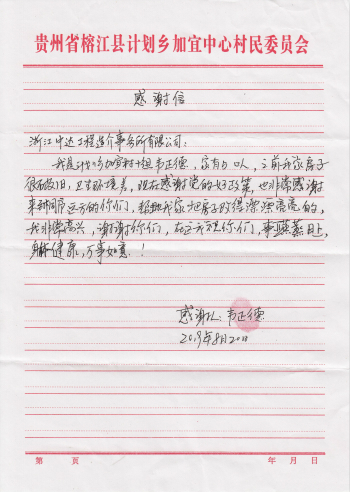 贵州省榕江县计划乡加宜中心村民委员会
感谢信
浙江中达工程造价事务所有限公司：
我是计划乡加宜村村民韦正德，家有5口人，之前我家房子
很破旧，卫生环境差，现在感谢党的好政策，也非常感谢
来村帮远方的你们，帮我家把房子改得漂漂亮亮的，
我非常高兴，谢谢你们，在这祝你们，事业蒸蒸日上，
身体健康，万事如意！
感谢人：韦正德
2019年8月20日
第 页 年 月 日